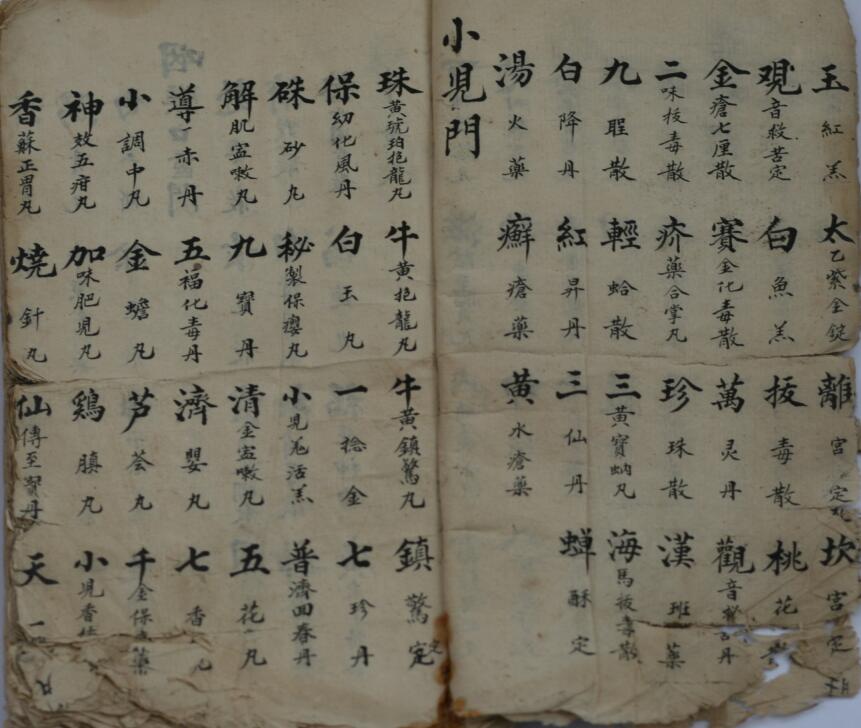 玉紅羔 太乙紫金錠 離宮定 坎宮定
观音救苦定 白魚羔 拔毒散 桃花
金瘡七厘散 賽金化毒散 萬灵丹 觀音丹
二味拔毒散 疥藥合掌丸 珍珠散 漢班藥
九聖散 輕蛤散 三黃寶蚋丸 海馬拔毒散
白降丹 紅昇丹 三仙丹 蟬酥定
湯火藥 癬瘡藥 黃水瘡藥
小児門
珠黃琥珀抱龍丸 牛黃抱龍丸 牛黃鎮驚丸 鎮驚定
保幼化風丹 白玉丸 一捻金 七珍丹
硃砂丸 秘製保嬰丸 小児羌活羔 普濟回春丹
解肌寍嗽丸 九寶丹 清金寍嗽丸 五花丸
導赤丹 五福化毒丹 濟嬰丸 七香丸
小調中丸 金蟾丸 芦荟丸 千金保藥
神效五疳丸 加味肥児丸 鷄丸 小児香
香蘇正胃丸 燒針丸 仙傳至寶丹 天一